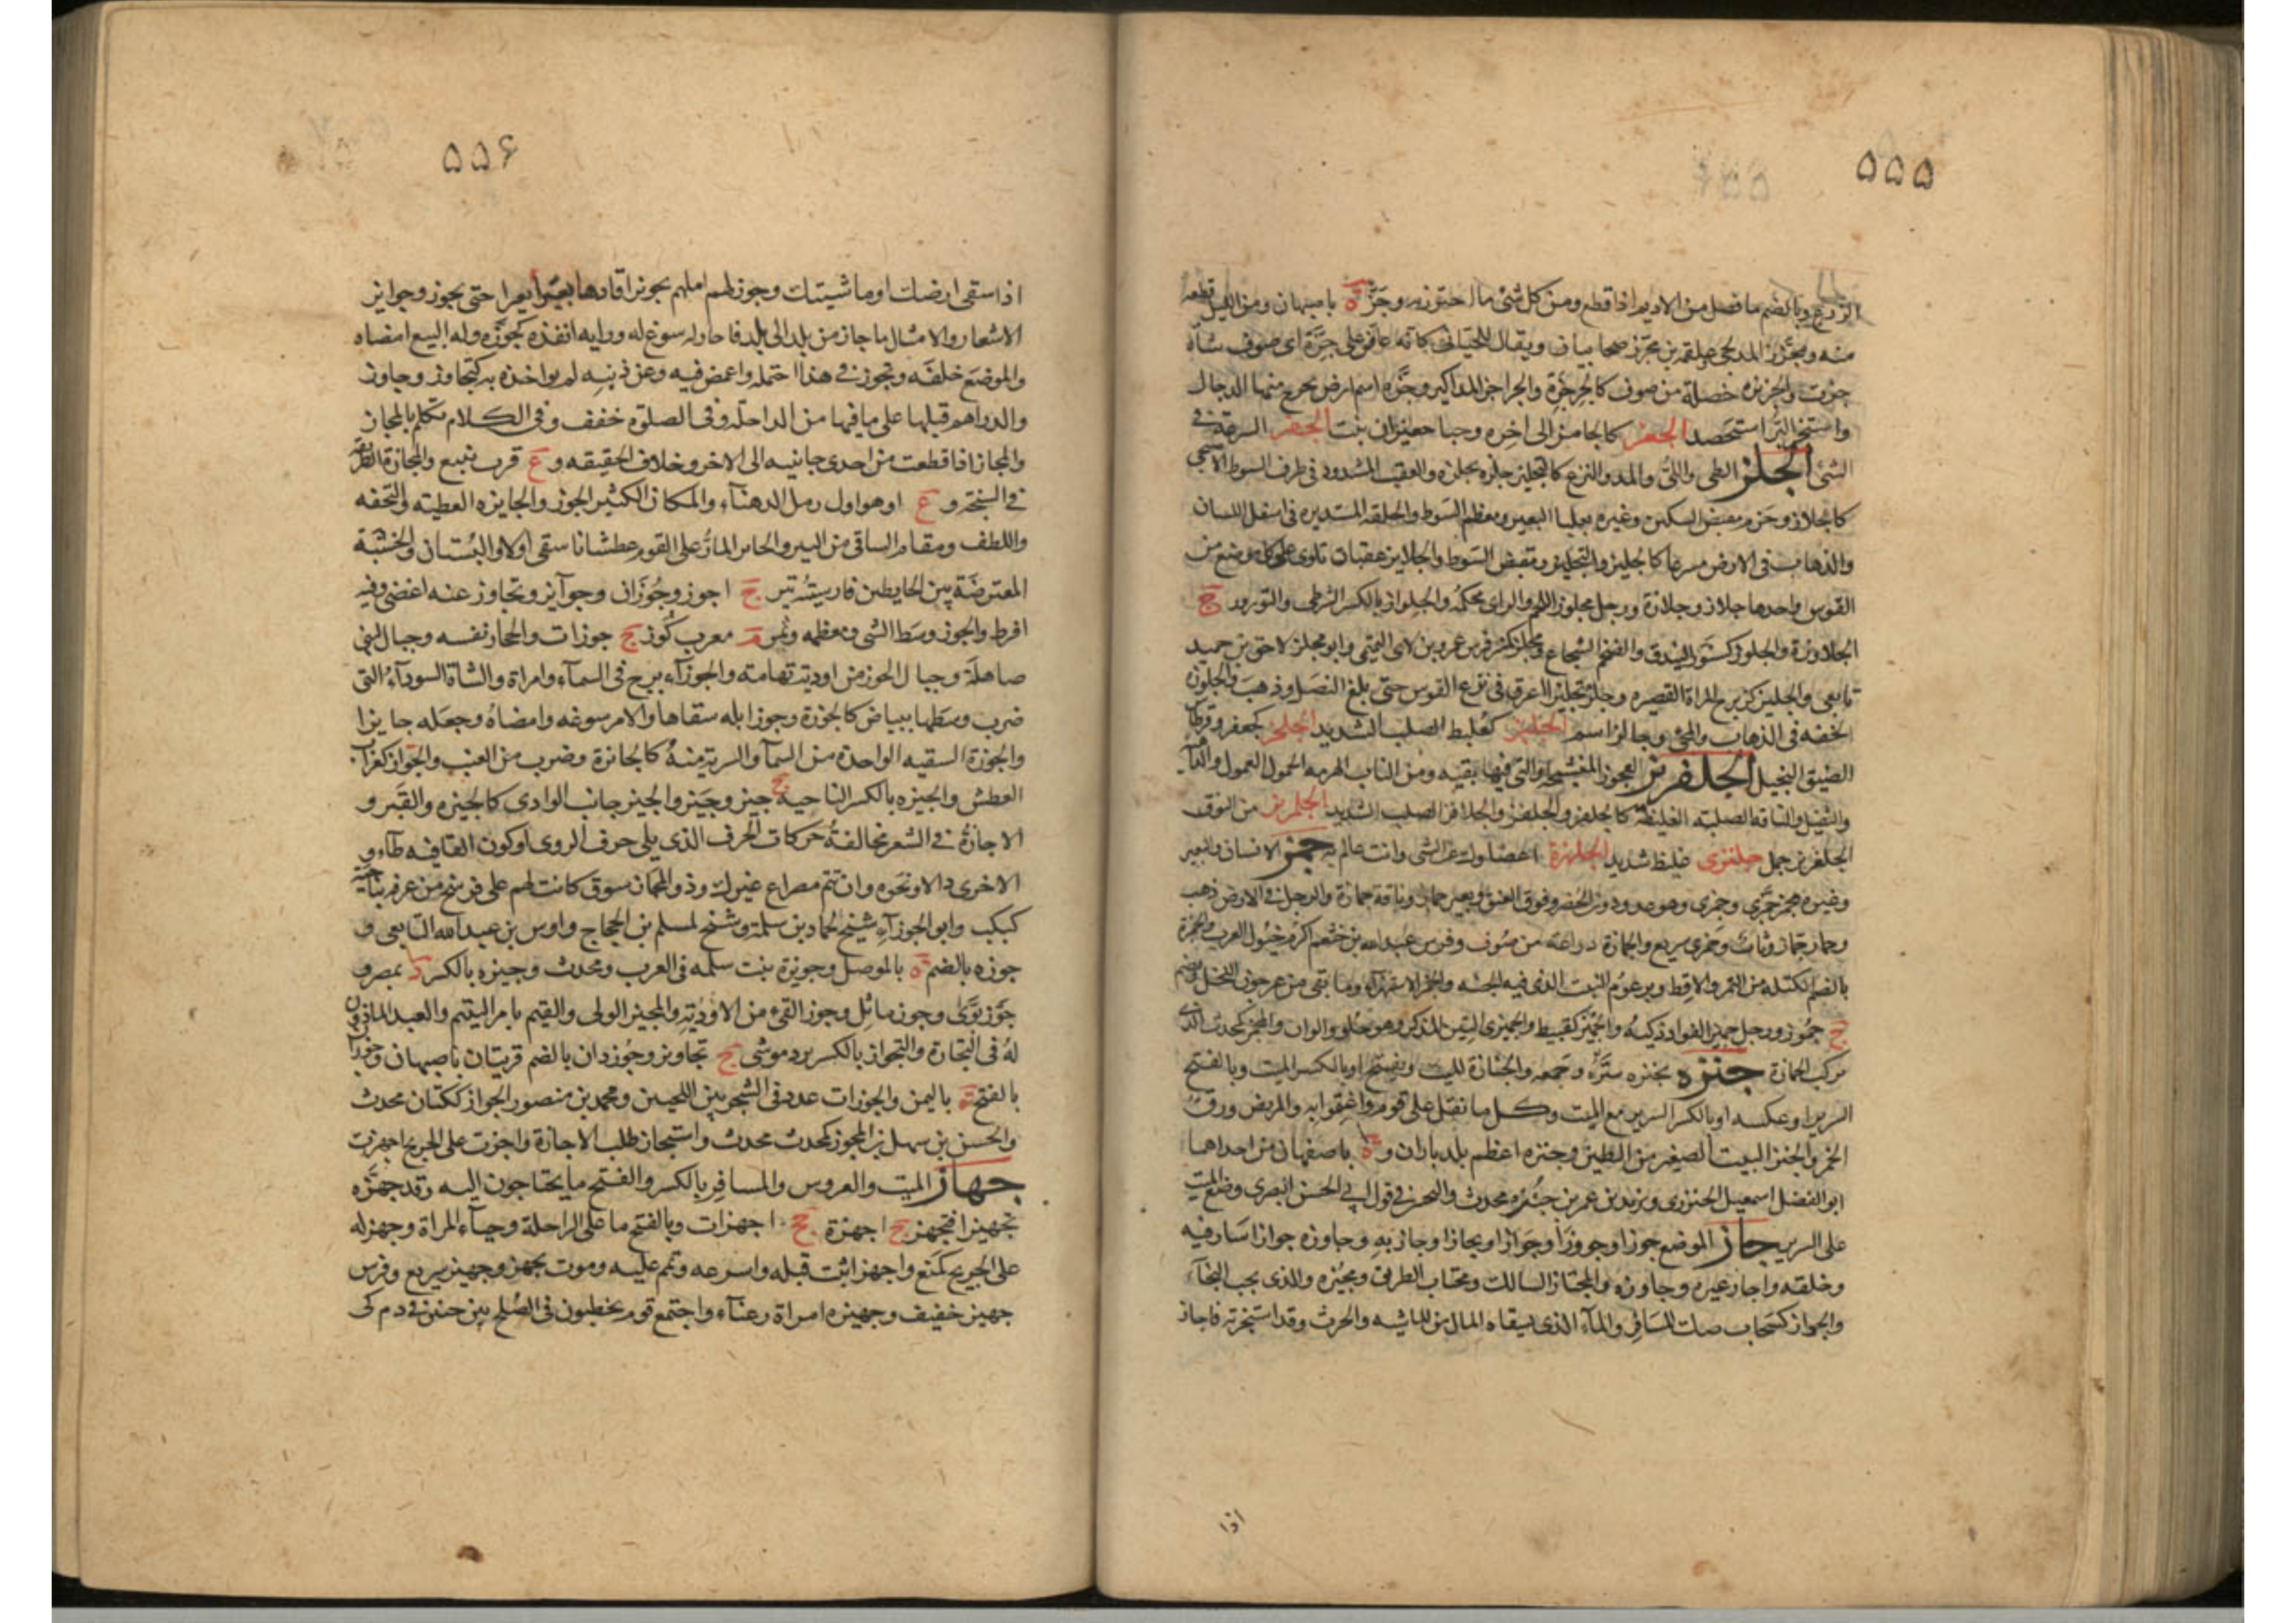 ۵۵۵
الزرع وبالضم ما فضل من الاديم اذا قطع ومن كل شئ ما اجتززته وجز ة باصبهان ومن الليل قطعة
منه ومجزز المدلجي وعلقمة بن مجزز صحابيان ويقال للحياني كانه عاض على جزة اى صوف شاة
جزت والجزيزه خصلة من صوف كالجزجزة والجزاجز المذاكير وجزه اسم ارض يخرج منها الدجال
واستجز البر استحصد الجعز كالجامز الى اخره وحبا جعيزان بنت الجفز السرعة في
الشئ الجلز الطى واللى والمد والنزع كالتجليز جلزه يجلزه والعقب المشدود في طرف السوط الاصبحى
كالجلاز وحزم مقبض السكين وغيره بعلباء البعير ومعظم السوط والحلقة المستديره في اسفل السنان
والذهاب في الارض مسرعا كالجليز والتجليز ومقبض السوط والجلايز عقبات تلوى على كل موضع من
القوس واحدها جلاز وجلازة ورجل مجلوز اللحم والراى محكمه والجلواز بالكسر الشرطى والثورور ج
الجلاوزة والجلوز كسنور البندق والضخم الشجاع ومجلز كمنبر فرس عمرو بن لاى التيمى وابو مجلز لاحق بن حميد
تابعى والجليز كزبرج المراة القصيره وجلز تجليزا اغرق في نزع القوس حتى بلغ النصل وذهب والجلوزه
الخفه في الذهاب والمجئ وجالز اسم الجلبز كعلبط الصلب الشديد الجلحز كجعفر وقرطاس
الضيق البخيل الجلفزيز العجوز المتشنجه او التي فيها بقيه ومن الناب الهرمه الحمول العمول والداهيه
والثقيل والناقة الصلبة الغليظة كالجلفز والجلفز والجلافز الصلب الشديد الجلمزيز من النوق
الجلفزيز جمل جلنزى غليظ شديد الجلهزة اغضاوك عن الشئ وانت عالم به جمز الانسان والبعير
وغيره يجمز جمزا وجمزى وهو عدو دون الحضر وفوق العنق وبعير جماز وناقة جمازة والرجل في الارض ذهب
وحمار جماز وثاب وجمزى سريع والجمازة دراعة من صوف وفرس عبد الله بن خثعم اكرم خيول العرب والجمزة
بالضم الكتلة من التمر والاقط وبرعوم النبت الذى فيه الحبه والجمز الاستهزاء وما بقى من عرجون النخل ويضم
ج جموز ورجل جميز الفواد ذكيه والجميز كقبيط والجميزى التين الذكر وهو حلو والوان والمجمز كمحدث الذى
يركب الجمازة جنزه يجنزه ستره وجمعه والجنازة الميت ويفتح او بالكسر الميت وبالفتح
السرير او عكسه او بالكسر السرير مع الميت وكل ما ثقل على قوم واغتموا به والمريض وزق
الخمر والجنز البيت الصغير من الطين وجنزه اعظم بلد باران و ة باصفهان من احداهما
ابو الفضل اسمعيل الجنزوى ويزيد بن عمر بن جنزه محدث والتجنيز في قول ابي الحسن البصرى وضع الميت
على السرير جاز الموضع جوزا وجووزا وجوازا ومجازا وجاز به وجاوزه جوازا سار فيه
وخلفه واجاز غيره وجاوزه والمجتاز السالك ومجتاب الطريق ومجيزه والذى يحب النجاء
والجواز كسحاب صك المسافر والماء الذى يسقاه المال من الماشيه والحرث وقد استجزته فاجاز
اذا
۵۵۶
اذا سقى ارضك او ماشيتك وجوز لهم ابلهم تجويزا قادها بعيرا بعيرا حتى تجوز وجوايز
الاشعار والامثال ما جاز من بلد الى بلد فاجاز له سوغ له ورايه انفذه كجوزه وله البيع امضاه
والموضع خلفه وتجوز في هذا احتمله واغمض فيه وعن ذنبه لم يواخذه به كتجاوز وجاوز
والدراهم قبلها على ما فيها من الداخله وفي الصلوة خفف وفي الكلام تكلم بالمجاز
والمجاز اذا قطعت من احدى جانبيه الى الاخر وخلاف الحقيقه و ع قرب ينبع والمجازة الطريقة
في السبخة و ع او هو اول رمل الدهناء والمكان الكثير الجوز والجايزه العطية والتحفه
واللطف ومقام الساقى من البير والجائز المار على القوم عطشانا سقى او لا والبستان والخشبة
المعترضة بين الحايطين فارسيته تير ج اجوز وجوزان وجوآيز وتجاوز عنه اغضى وفيه
افرط والجوز وسط الشئ ومعظمه وثمر م معرب كوز ج جوزات والحجاز نفسه وجبال لبنى
صاهلة وجبال الجوز من اودية تهامة والجوزاء برج في السماء وامراة والشاة السوداء التى
ضرب وسطها ببياض كالجوزة وجوز ابله سقاها والامر سوغه وامضاه وجعله جايزا
والجوزة السقيه الواحدة من الماء والشربة منه كالجائزة وضرب من العنب والجواز كغراب
العطش والجيزه بالكسر الناحية ج جيز وجيز والجيز جانب الوادى كالجيزه والقبر و
الاجازة في الشعر مخالفة حركات الحرف الذى يلى حرف الروى او كون القافيه طاء و
الاخرى دالا ونحوه وان تتم مصراع غيرك وذو المجاز سوق كانت لهم على فرسخ من عرفه بناحية
كبكب وابو الجوزآء شيخ لحماد بن سلمة وشيخ لمسلم بن الحجاج واوس بن عبد الله التابعى و
جوزه بالضم ة بالموصل وجويزة بنت سلمه في العرب ومحدث وجيزه بالكسر د بمصر و
جوز بوى وجوز ماثل وجوز القئ من الادوية والمجيز الولى والقيم بامر اليتيم والعبد الماذون
له في التجارة والتجواز بالكسر برد موشى ج تجاويز وجوزدان بالضم قريتان باصبهان وجوزا
بالفتح ة باليمن والجوزات عدد في الشجر بين اللحيين ومحمد بن منصور الجواز ككتان محدث
والحسن بن سهل بن المجوز كمحدث محدث واستجاز طلب الاجازة واجزت على الجريح اجهزت
جهاز الميت والعروس والمسافر بالكسر والفتح ما يحتاجون اليه وقد جهزه
تجهيزا فتجهز ج اجهزة جج اجهزات وبالفتح ما على الراحلة وحياء المراة وجهز له
على الجريح كمنع واجهز اثبت قتله واسرعه وتمم عليه وموت مجهز وجهيز سريع وفرس
جهيز خفيف وجهيزه امراة رعناء واجتمع قوم يخطبون في الصلح بين حيين في دم كى